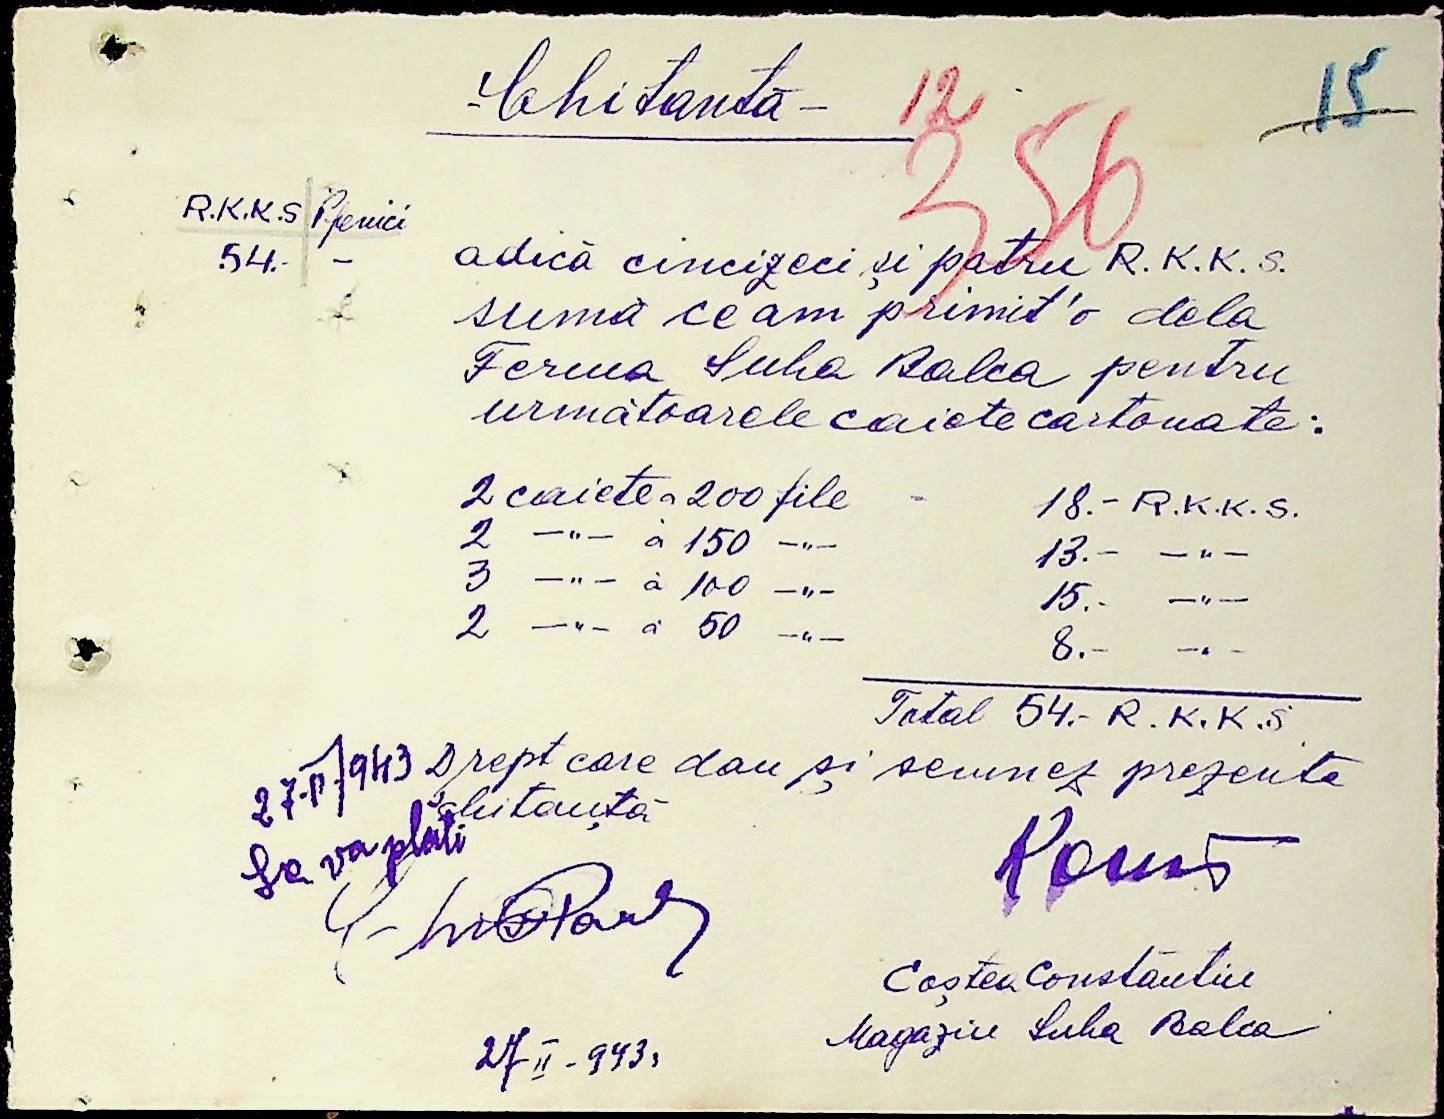 - Chitantă -
12
356
15
R.K.K.S Pfenici
54.- -
adică cincizeci și patru R.K.K.S.
sumă ce am primit'o dela
Ferma Suha Balca pentru
următoarele caiete cartonate:
2 caiete a 200 file - 18.- R.K.K.S.
2 -"- à 150 -"- 13.- -"-
3 -"- à 100 -"- 15.- -"-
2 -"- a 50 -"- 8.- -"-
Total 54.- R.K.K.S
Drept care dau și semnez prezenta
chitanță
27-II-943
Se va plăti
Coștea Constantin
Magazin Suha Balca
27 II - 943.